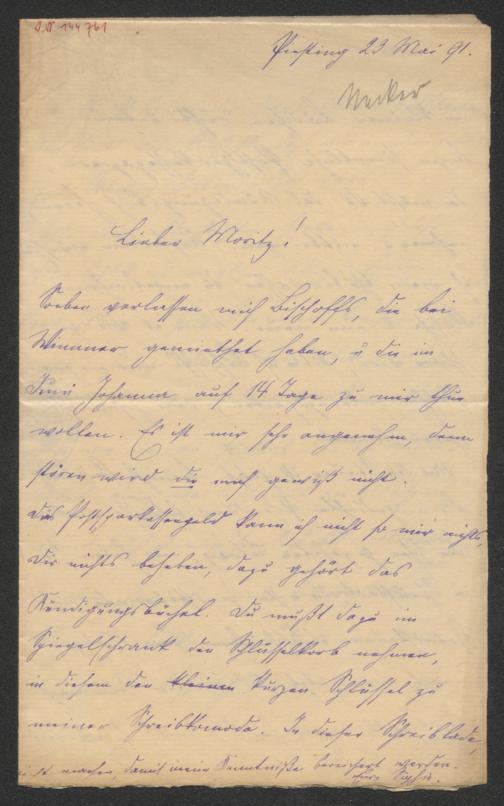 I.N. 144761
Piesting 23 Mai 91.
Necker
Lieber Moritz!
Soeben verlassen mich Bischoffs, die bei
Wimmer gemiethet haben, u die im
Juni Johanna auf 14 Tage zu mir thun
wollen. Es ist mir sehr angenehm, denn
stören wird die mich gewiß nicht.
Das Postsparkassengeld kann ich nicht so mir nichts,
dir nichts beheben, dazu gehört das
Kündigungsbüchel. Du mußt dazu im
Spiegelschrank den Schlüsselkorb nehmen,
in diesem den kleinen kurzen Schlüssel zu
meiner Schreibkomode. In dieser Schreiblade,
machen, damit meine Kenntniße bereichert werden.
Eure Sophie.